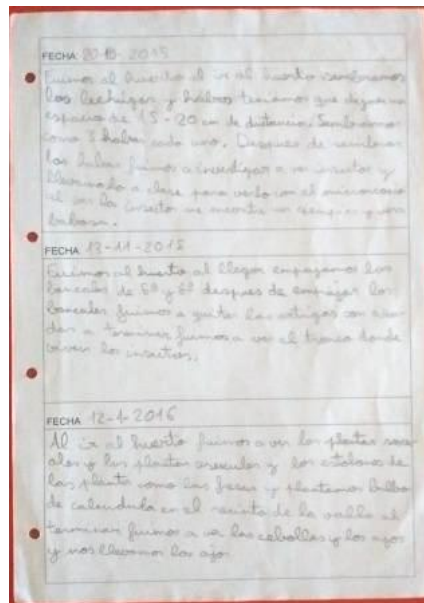 FECHA: 20-10-2015
Fuimos al huerto al ir al huerto sembramos
las lechugas y habas teníamos que dejar un
espacio de 15-20 cm de distancia. Sembramos
como 3 habas cada uno. Después de sembrar
las habas fuimos a investigar a ver insectos y
llevarnoslo a clase para verlo con el microscopio
al ser los insectos me encontré un ciempiés y una
babosa.
FECHA: 13-11-2015
Fuimos al huerto al llegar empezamos los
bancales de 5º y 6º después de empezar los
bancales fuimos a quitar las ortigas con
a terminar fuimos a ver el tronco donde
viven los insectos.
FECHA: 12-1-2016
Al ir al huerto fuimos a ver las plantas
y las plantas y los estolones de
las plantas como las fresas y plantamos bulbo
de calendula en el recinto de la valla al
terminar fuimos a ver las cebollas y los ajos
y nos llevamos los ajos.